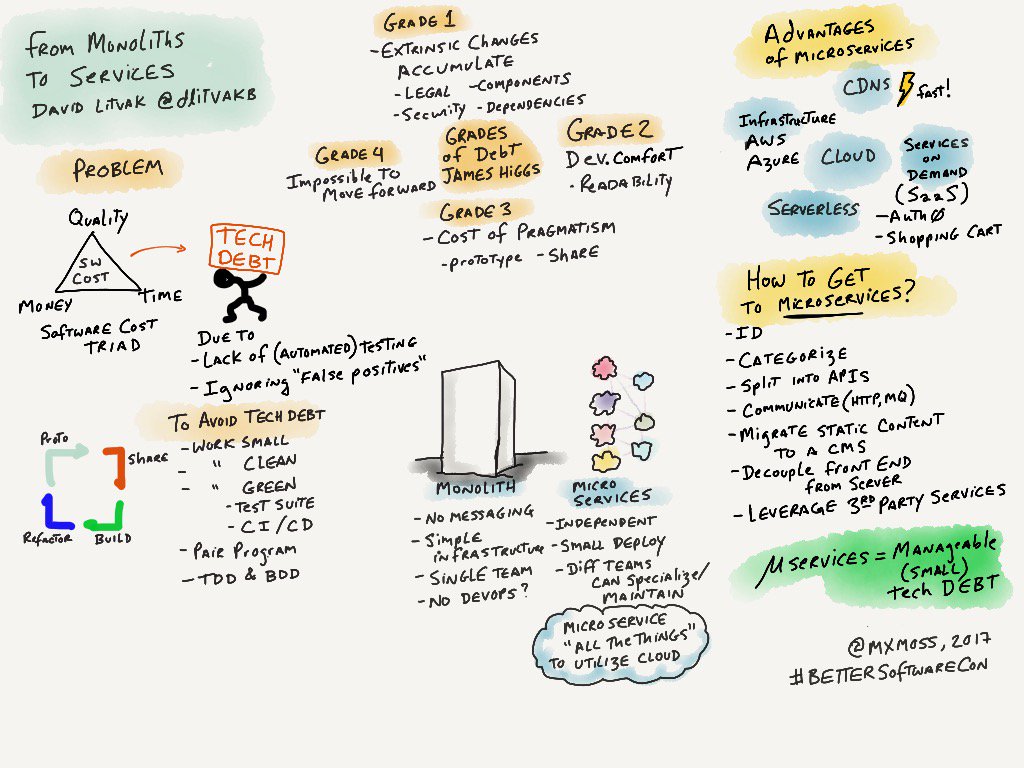 From Monoliths
to Services
David Litvak @dlitvakb
Problem
Quality
SW
Cost
Money
Time
Software Cost
Triad
Tech
Debt
Due to
- Lack of (Automated) Testing
- Ignoring "False positives"
To Avoid Tech Debt
- Work Small
- " Clean
- " Green
- Test Suite
- CI/CD
- Pair Program
- TDD & BDD
Proto
Share
Refactor
Build
Grade 1
- Extrinsic Changes
Accumulate
- Legal - Components
- Security - Dependencies
Grades
of Debt
James Higgs
Grade 2
Dev. Comfort
- Readability
Grade 4
Impossible to
Move forward
Grade 3
- Cost of Pragmatism
- Prototype - Share
Monolith
- No Messaging
- Simple
infrastructure
- Single Team
- No DevOps?
Micro
Services
- Independent
- Small Deploy
- Diff Teams
can Specialize/
Maintain
Microservice
"All the Things"
to utilize Cloud
Advantages
of Microservices
CDNs
fast!
Infrastructure
AWS
Azure
Cloud
Services
on
Demand
(SaaS)
- Auth0
- Shopping Cart
Serverless
How to Get
to Microservices?
- ID
- Categorize
- Split into APIs
- Communicate (HTTP, MQ)
- Migrate Static Content
to a CMS
- Decouple Front End
from Server
- Leverage 3rd Party Services
µservices = Manageable
(small)
tech Debt
@mxmoss, 2017
#BetterSoftwareCon